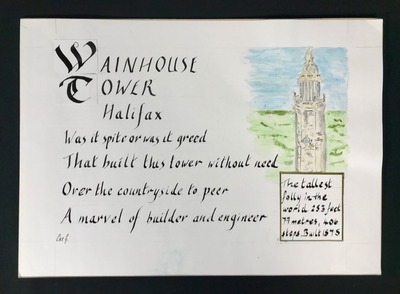 WAINHOUSE
TOWER
Halifax
Was it spite or was it greed
That built this tower without need
Over the countryside to peer
A marvel of builder and engineer
The tallest
folly in the
world 253 feet
77 metres, 406
steps. Built 1875